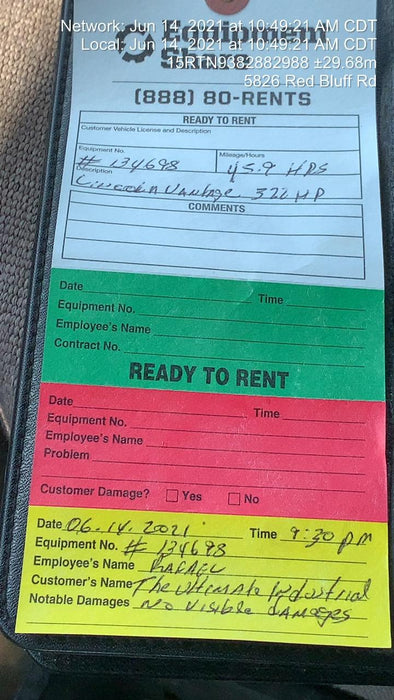 Network: Jun 14, 2021 at 10:49:21 AM CDT
Local: Jun 14, 2021 at 10:49:21 AM CDT
15RTN9382882988 ±29.68m
5826 Red Bluff Rd
Equipment
(888) 80-RENTS
READY TO RENT
Customer Vehicle License and Description
Equipment No. # 134698 Mileage/Hours 45.9 HRS
Description Lincoln Vantage 322 HP
COMMENTS
Date Time
Equipment No.
Employee's Name
Contract No.
READY TO RENT
Date Time
Equipment No.
Employee's Name
Problem
Customer Damage? Yes No
Date 06.14.2021 Time 9:30 pm
Equipment No. # 134698
Employee's Name RAFAEL
Customer's Name The ultimate Industrial
Notable Damages No visible damages